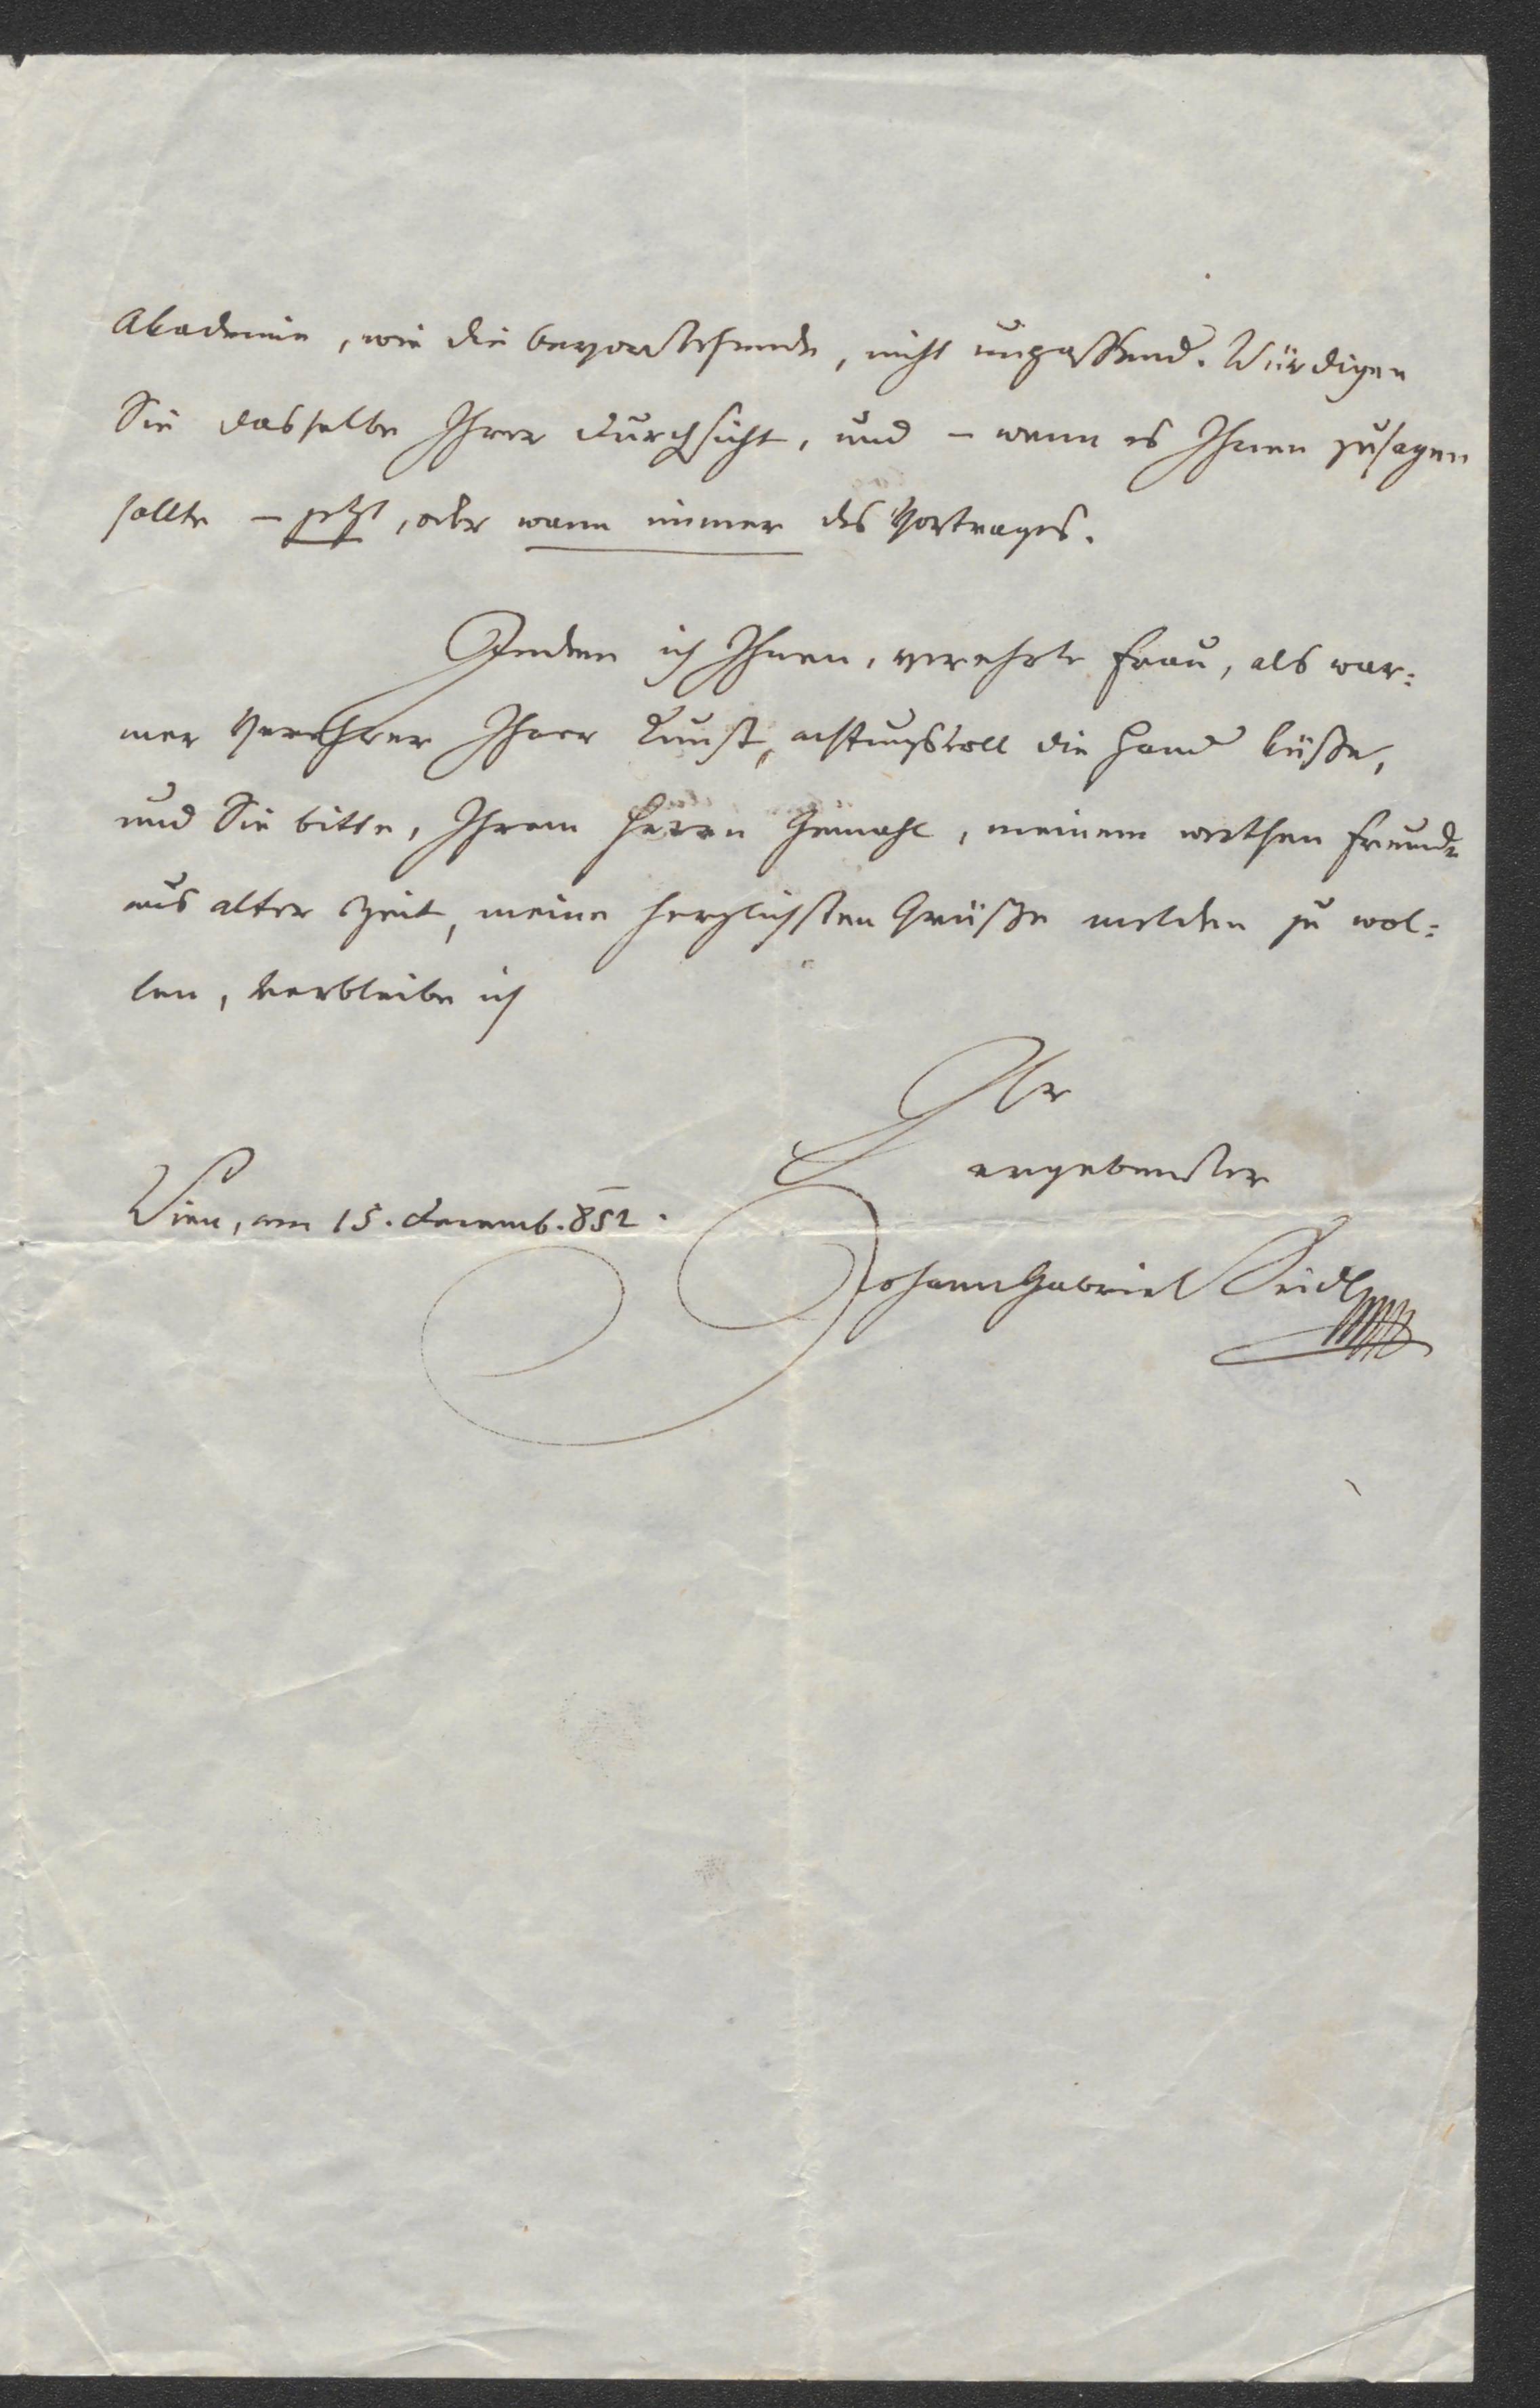 Akademie, wie die bevorstehende, nicht unpassend. Würdigen
Sie dasselbe Ihrer Durchsicht, und – wenn es Ihnen zusagen
sollte – jetzt, oder wann immer des Vortrages.
Indem ich Ihnen, verehrte Frau, als war=
mer Verehrer Ihrer Kunst, achtungsvoll die Hand küsse,
und Sie bitte, Ihrem Herrn Gemahl, meinem werthen Freunde
aus alter Zeit, meine herzlichsten Grüße melden zu wol=
len, verbleibe ich
Ihr
ergebenster
Wien, am 15. Decemb. 852.
Johann Gabriel Seidl